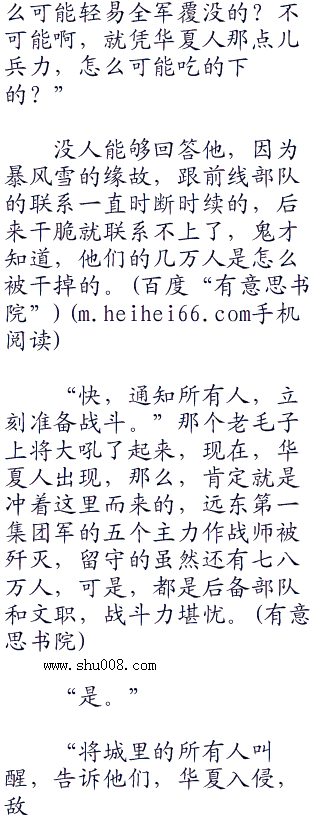 么可能轻易全军覆没的？不
可能啊，就凭华夏人那点儿
兵力，怎么可能吃的下
的？”
没人能够回答他，因为
暴风雪的缘故，跟前线部队
的联系一直时断时续的，后
来干脆就联系不上了，鬼才
知道，他们的几万人是怎么
被干掉的。(百度“有意思书
院”)(m.heihei66.com手机
阅读)
“快，通知所有人，立
刻准备战斗。”那个老毛子
上将大吼了起来，现在，华
夏人出现，那么，肯定就是
冲着这里而来的，远东第一
集团军的五个主力作战师被
歼灭，留守的虽然还有七八
万人，可是，都是后备部队
和文职，战斗力堪忧。(有意
思书院)
www.shu008.com
“是。”
“将城里的所有人叫
醒，告诉他们，华夏入侵，
敌